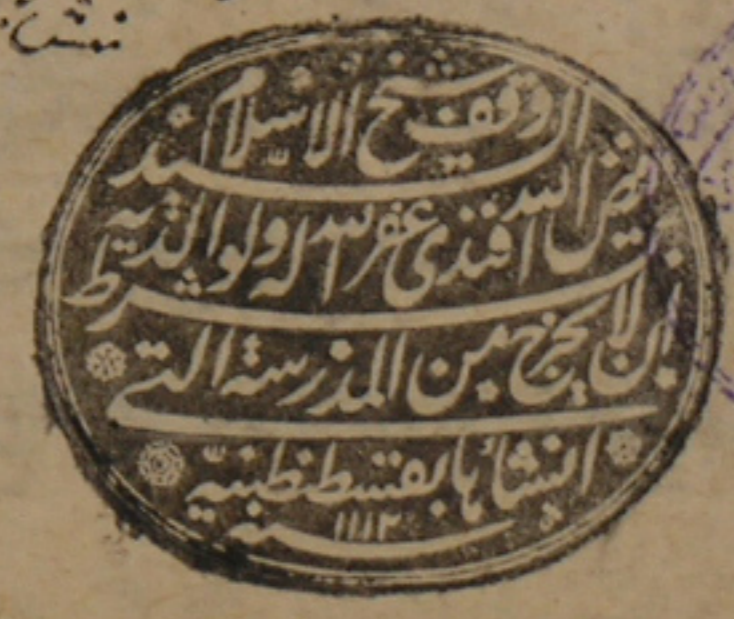 وقف شيخ الاسلام السيد
فيض الله افندى غفر الله له ولوالديه
بشرط
ان لا يخرج من المدرسة التى
انشأها بقسطنطينيه
سنه ١١١٢